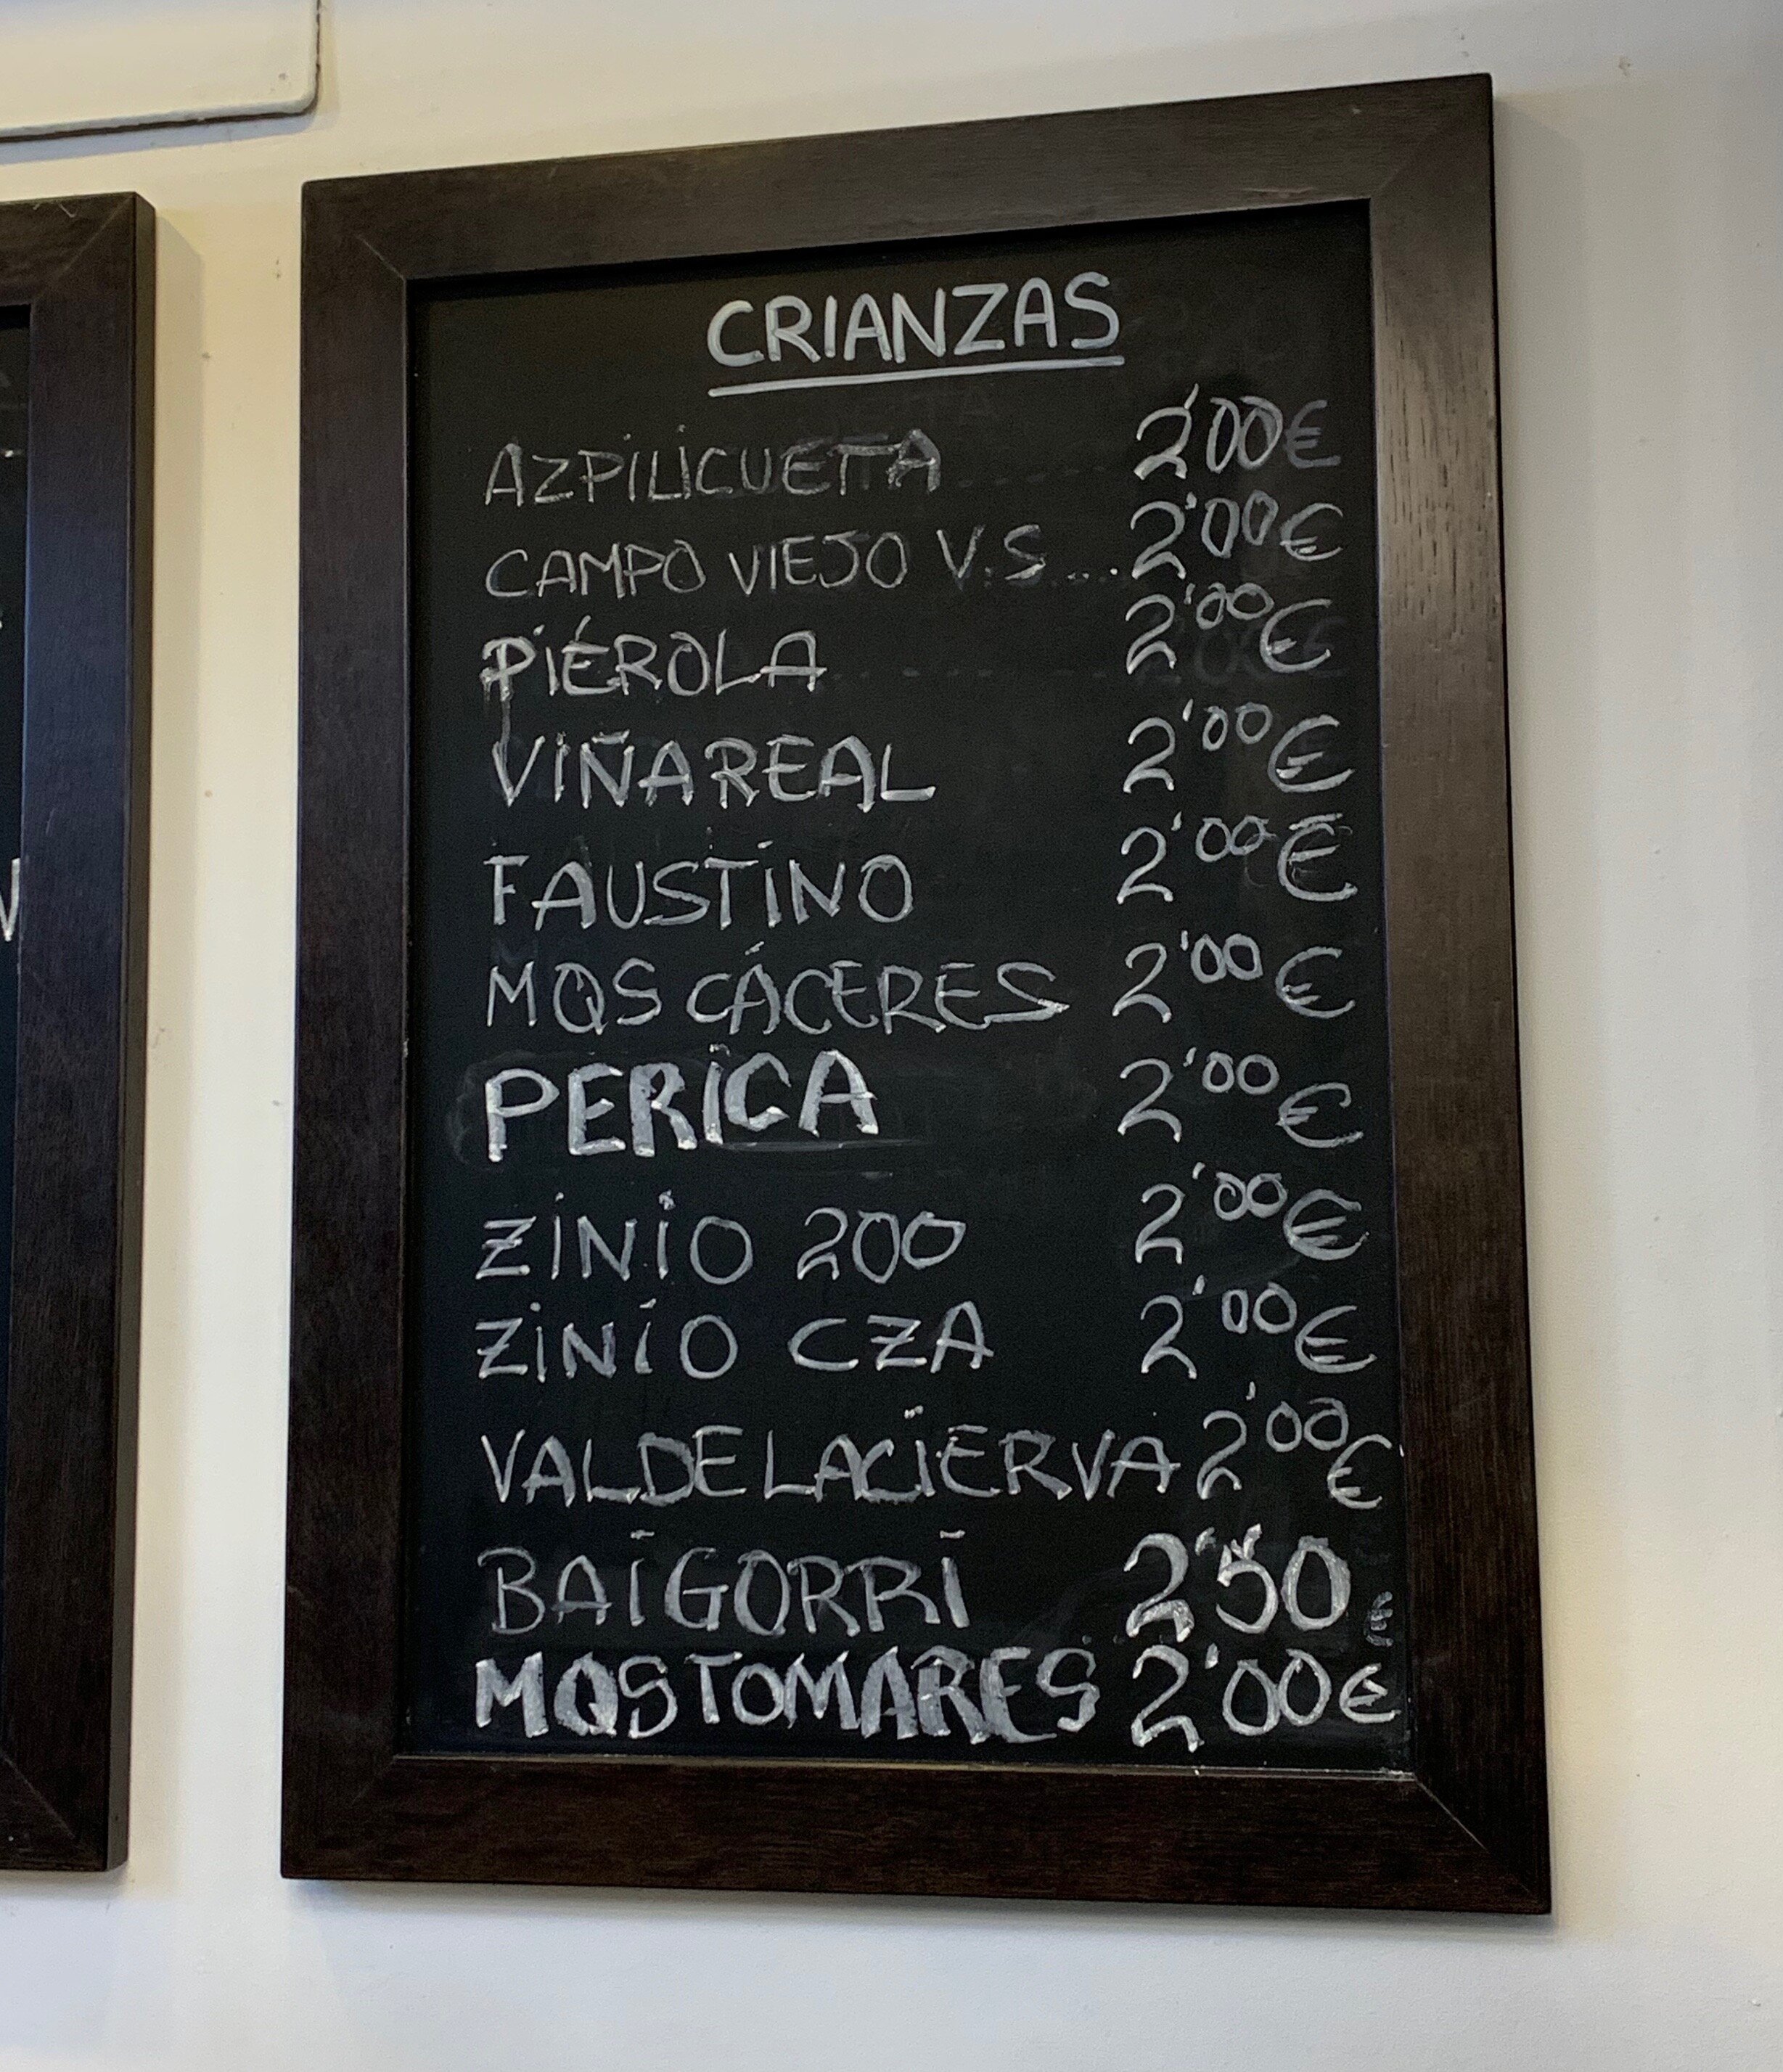 CRIANZAS
AZPILICUETA 2'00€
CAMPO VIEJO V.S... 2'00€
PIÉROLA 2'00€
VIÑA REAL 2'00€
FAUSTINO 2'00€
MQS CÁCERES 2'00€
PERICA 2'00€
ZINIO 200 2'00€
ZINIO CZA 2'00€
VALDELACIERVA 2'00€
BAIGORRI 2'50€
MQS TOMARES 2'00€